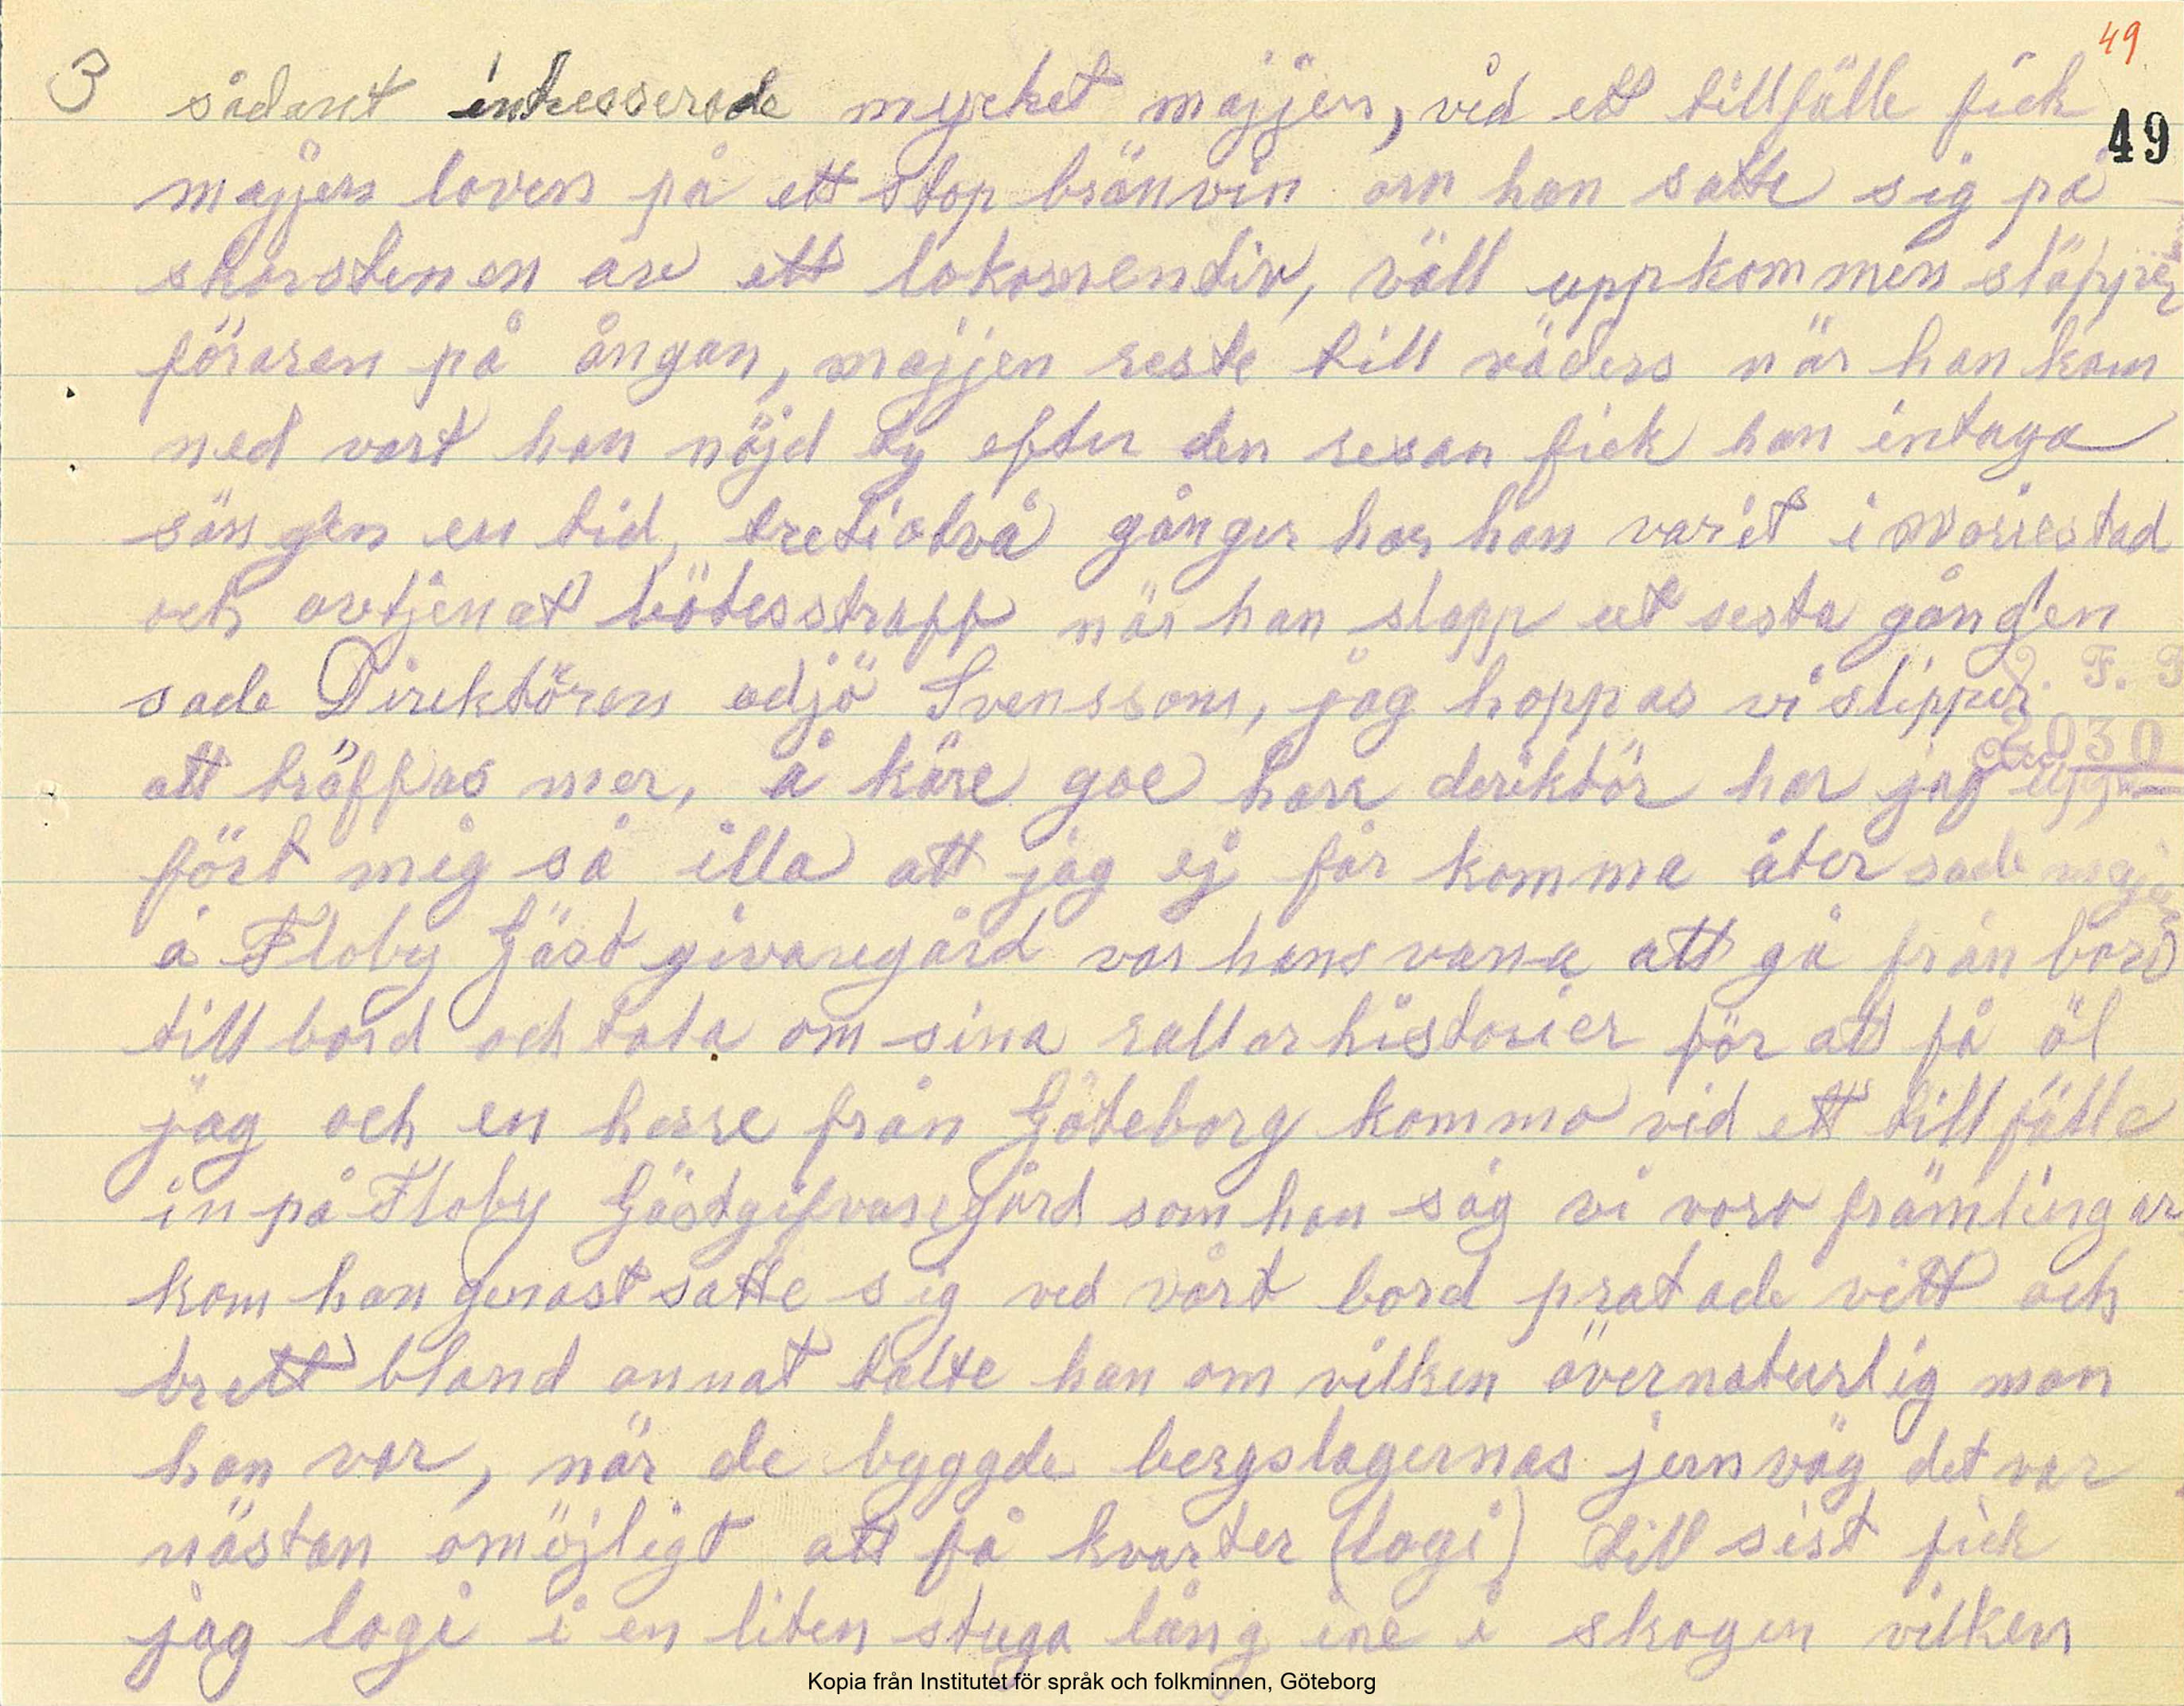 49
3 sådant intresserade mycket majjen, vid ett tillfälle fick
49
majjen loven på ett stop bränvin om han satte sig på
skorstenen av ett lokomentiv, väll uppkommen släpper
föraren på ångan, majjen reste till väders när han kom
ned vart han nöjd ty efter den resan fick han intaga
sängen en tid, tretiotvå gånger har han varit i Mariestad
och avtjenat bötesstraff när han slapp ut sesta gången
sade Direktören adjö Svensson, jag hoppas vi slipper
att träffas mer, å käre goe herr deriktör har jag
fört mig så illa att jag ej får komma åter sade majjen
å Floby Gästgivaregård var hans vana att gå från bord
till bord och tala om sina rallarhistorier för att få öl
jag och en herre från Göteborg kommo vid ett tillfälle
in på Floby Gästgifvaregård som han såg vi voro främlingar
kom han genast satte sig ved vårt bord pratade vitt och
brett bland annat talte han om vilken övernaturlig man
han var, när de byggde bergslagernas jernväg det var
nästan omöjligt att få kvarter (logi) till sist fick
jag logi i en liten stuga lång ine i skogen vilken
Kopia från Institutet för språk och folkminnen, Göteborg